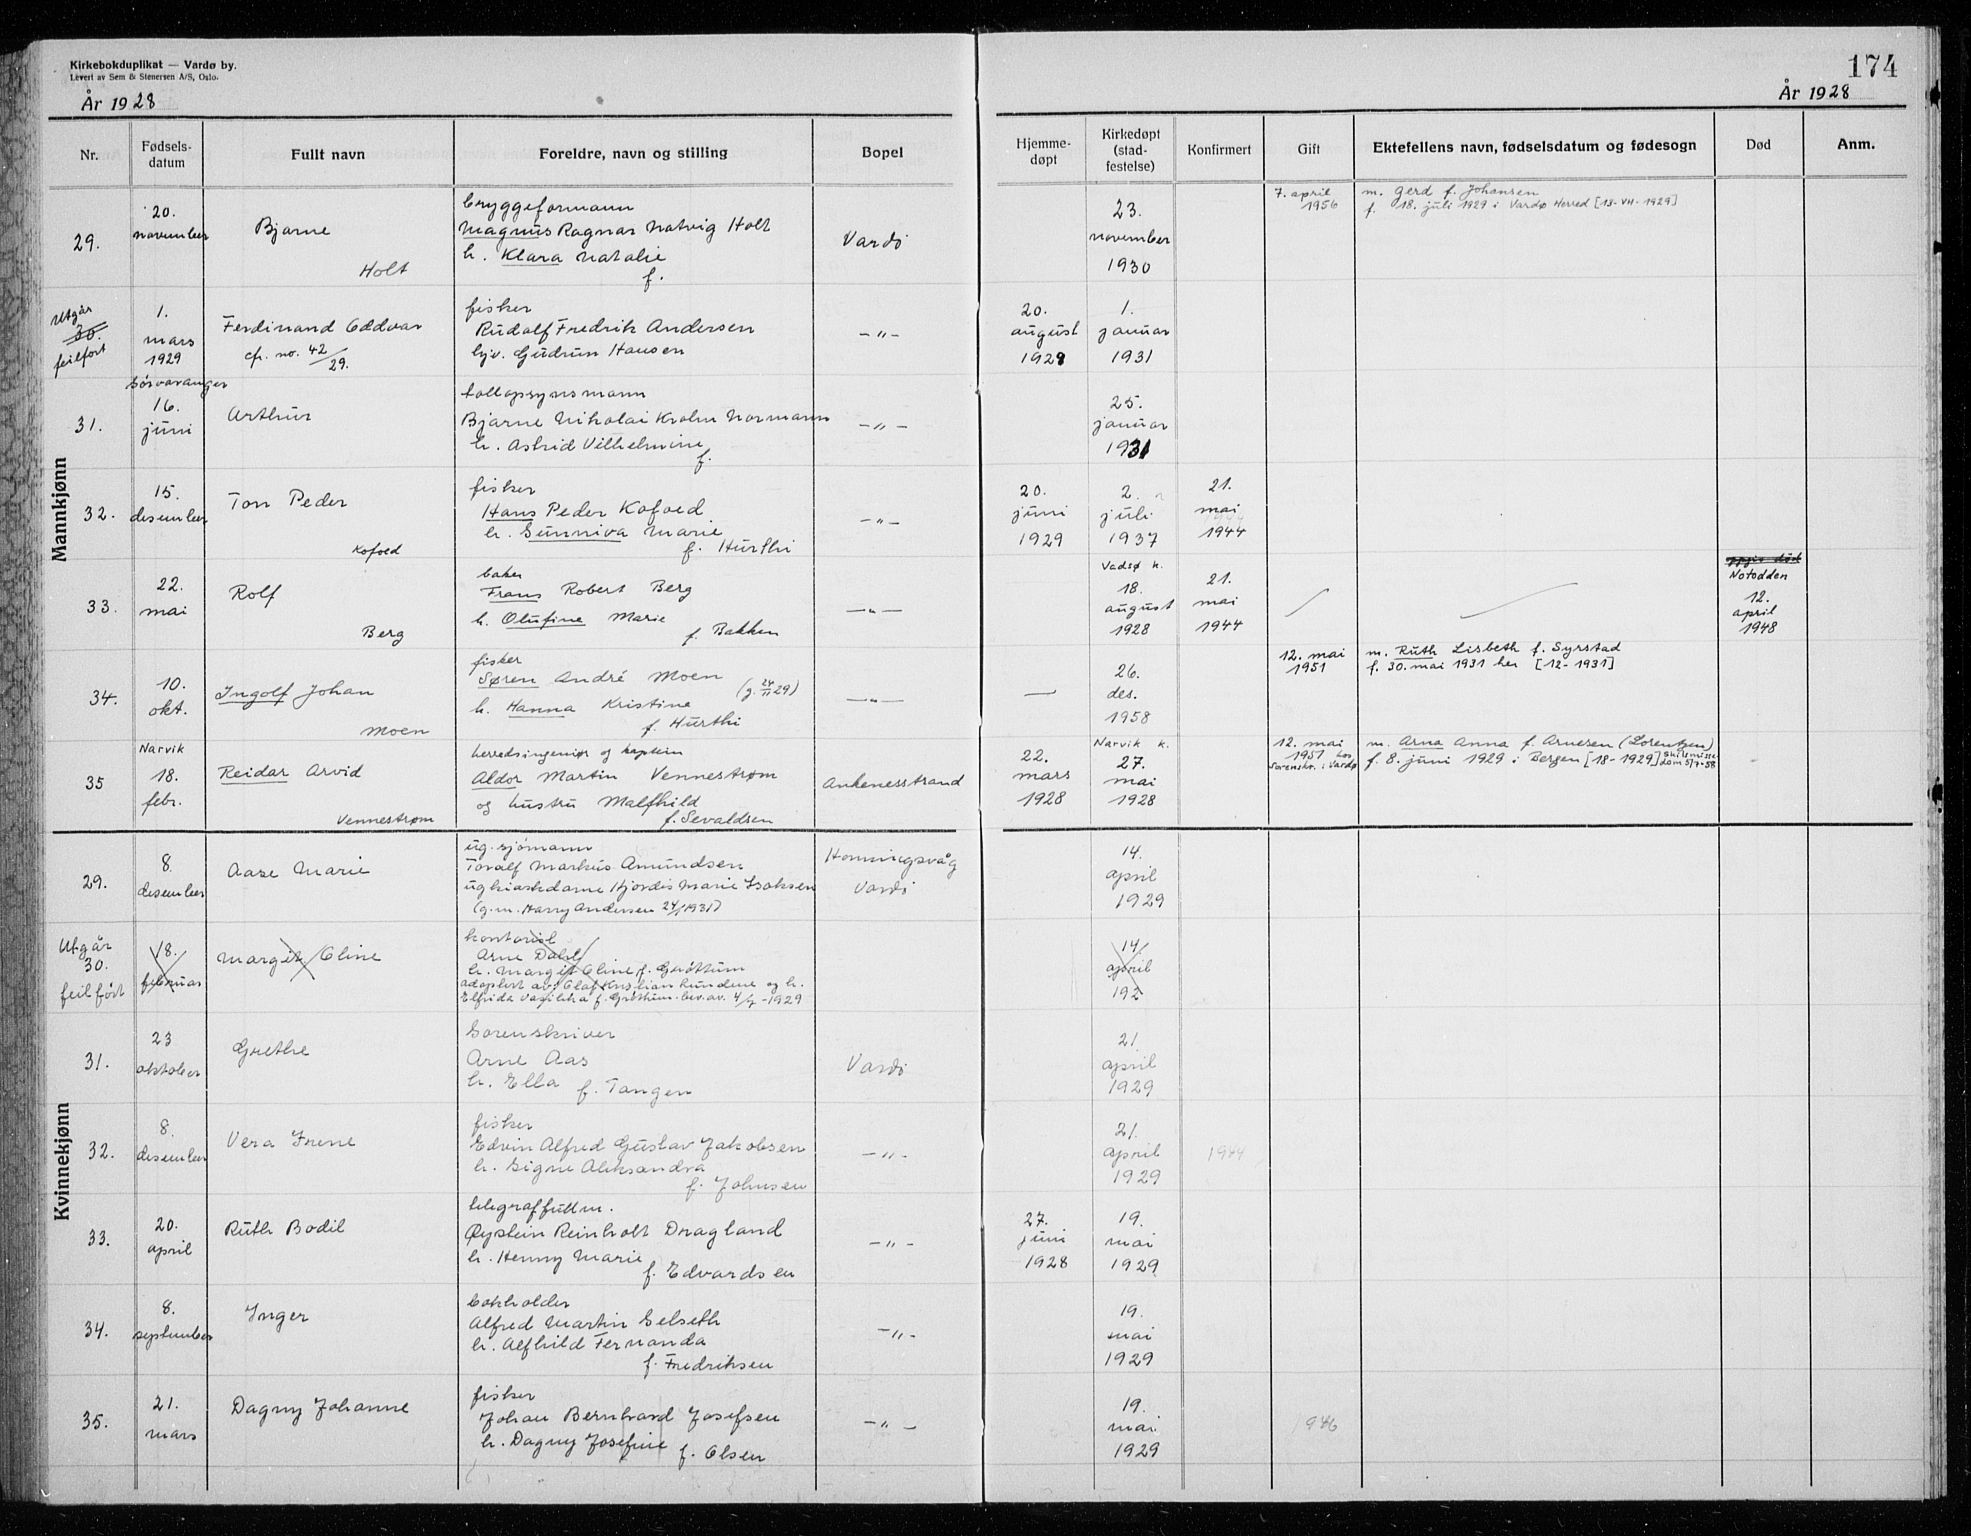 Kirkebokduplikat — Vardø by.
Levert av Sem & Stenersen A/S, Oslo.
År 1928
174
År 1928
Nr.
Fødsels-
datum
Fullt navn
Foreldre, navn og stilling
Bopel
Hjemme-
døpt
Kirkedøpt
(stad-
festelse)
Konfirmert
Gift
Ektefellens navn, fødselsdatum og fødesogn
Død
Anm.
Mannkjønn
29.
20.
november
Bjarne
Holt
bryggeformann
Magnus Ragnar Natvig Holt
h. Klara Natalie
f.
Vardö
23.
november
1930
7. april
1956
m. Gerd f. Johansen
f. 18. juli 1929 i Vardø Herred [13-VH-1929]
Utgår
30.
feilført
1.
mars
1929
Sörvaranger
Ferdinand Oddvar
cfr. no. 42/29.
fisker
Rudolf Fredrik Andersen
hjv. Gudrun Hansen
—"—
20.
august
1929
1.
januar
1931
31.
16.
juni
Arthur
tollopsynsmann
Bjarne Nikolai Krohn Normann
h. Astrid Vilhelmine
f.
—"—
25.
januar
1931
32.
15.
desember
Ton Peder
Kofoed
fisker
Hans Peder Kofoed
h. Gunniva Marie
f. Hurthi
—"—
20.
juni
1929
2.
juli
1937
21.
mai
1944
33.
22.
mai
Rolf
Berg
baker
Frans Robert Berg
h. Olufine Marie
f. Bakken
—"—
Vadsø k.
18.
august
1928
21.
mai
1944
Notodden
12.
april
1948
34.
10.
okt.
Ingolf Johan
Moen
fisker
Søren André Moen
(g. 24/11 29)
h. Hanna Kristine
f. Hurthi
—"—
—
26.
des.
1958
12. mai
1951
m. Ruth Lisbeth f. Syrstad
f. 30. mai 1931 her [12-1931]
35
Narvik
18.
febr.
Reidar Arvid
Vennestrøm
herredsingeniør og kaptein
Aldor Martin Vennestrøm
og hustru Malfhild
f. Sevaldsen
Ankenesstrand
22.
mars
1928
Narvik k.
27.
mai
1928
12. mai
1951 hos
Sorenskr. i Vardø
m. Arna Anna f. Arnesen (Lorentzen)
f. 8. juni 1929 i Bergen [18-1929] skilsmisse
dom 5/7-58
Kvinnekjønn
29.
8.
desember
Aase Marie
ug. sjömann
Toralf Markus Amundsen
ug. kioskdame Hjördis Marie Isaksen
(g.m. Harry Andersen 24/1 1931)
Honningsvåg
Vardö
14.
april
1929
Utgår
30.
feilfört
18.
februar
Margit Oline
kontorist
Arne Dahl
h. Margit Oline f. Gröttum
adoptert av: Olaf Kristian Rundene og h.
Elfrida f. Gröttum. bev. av. 4/7-1929
14
april
192
31.
23
oktober
Grethe
Sorenskriver
Arne Aas
h. Ella f. Tangen
Vardö
21.
april
1929
32.
8.
desember
Vera Irene
fisker
Edvin Alfred Gustav Jakobsen
h. Signe Aleksandra
f. Johnsen
—"—
21.
april
1929
1944
33.
20.
april
Ruth Bodil
telegraffullm.
Øystein Reinholt Dragland
h. Henny Marie
f. Edvardsen
—"—
27.
juni
1928
19.
mai
1929
34.
8.
september
Inger
bokholder
Alfred Martin Selseth
h. Alfhild Fernanda
f. Fredriksen
—"—
19.
mai
1929
35.
21.
mars
Dagny Johanne
fisker
Johan Bernhard Josefsen
h. Dagny Josefine
f. Olsen
—"—
19.
mai
1929